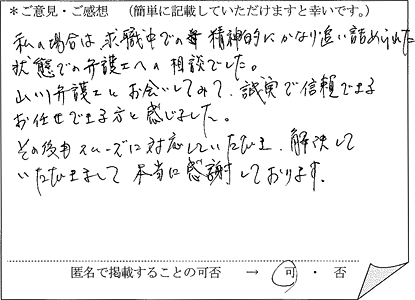 *ご意見・ご感想 (簡単に記載していただけますと幸いです。)
私の場合は求職中での 精神的にかなり追い詰められた
状態での弁護士への相談でした。
山川弁護士とお会いしてみて、誠実で信頼できる
お任せできる方と感じました。
その後もスムーズに対応していただき、解決して
いただきまして本当に感謝しております。
匿名で掲載することの可否 → 可 ・ 否